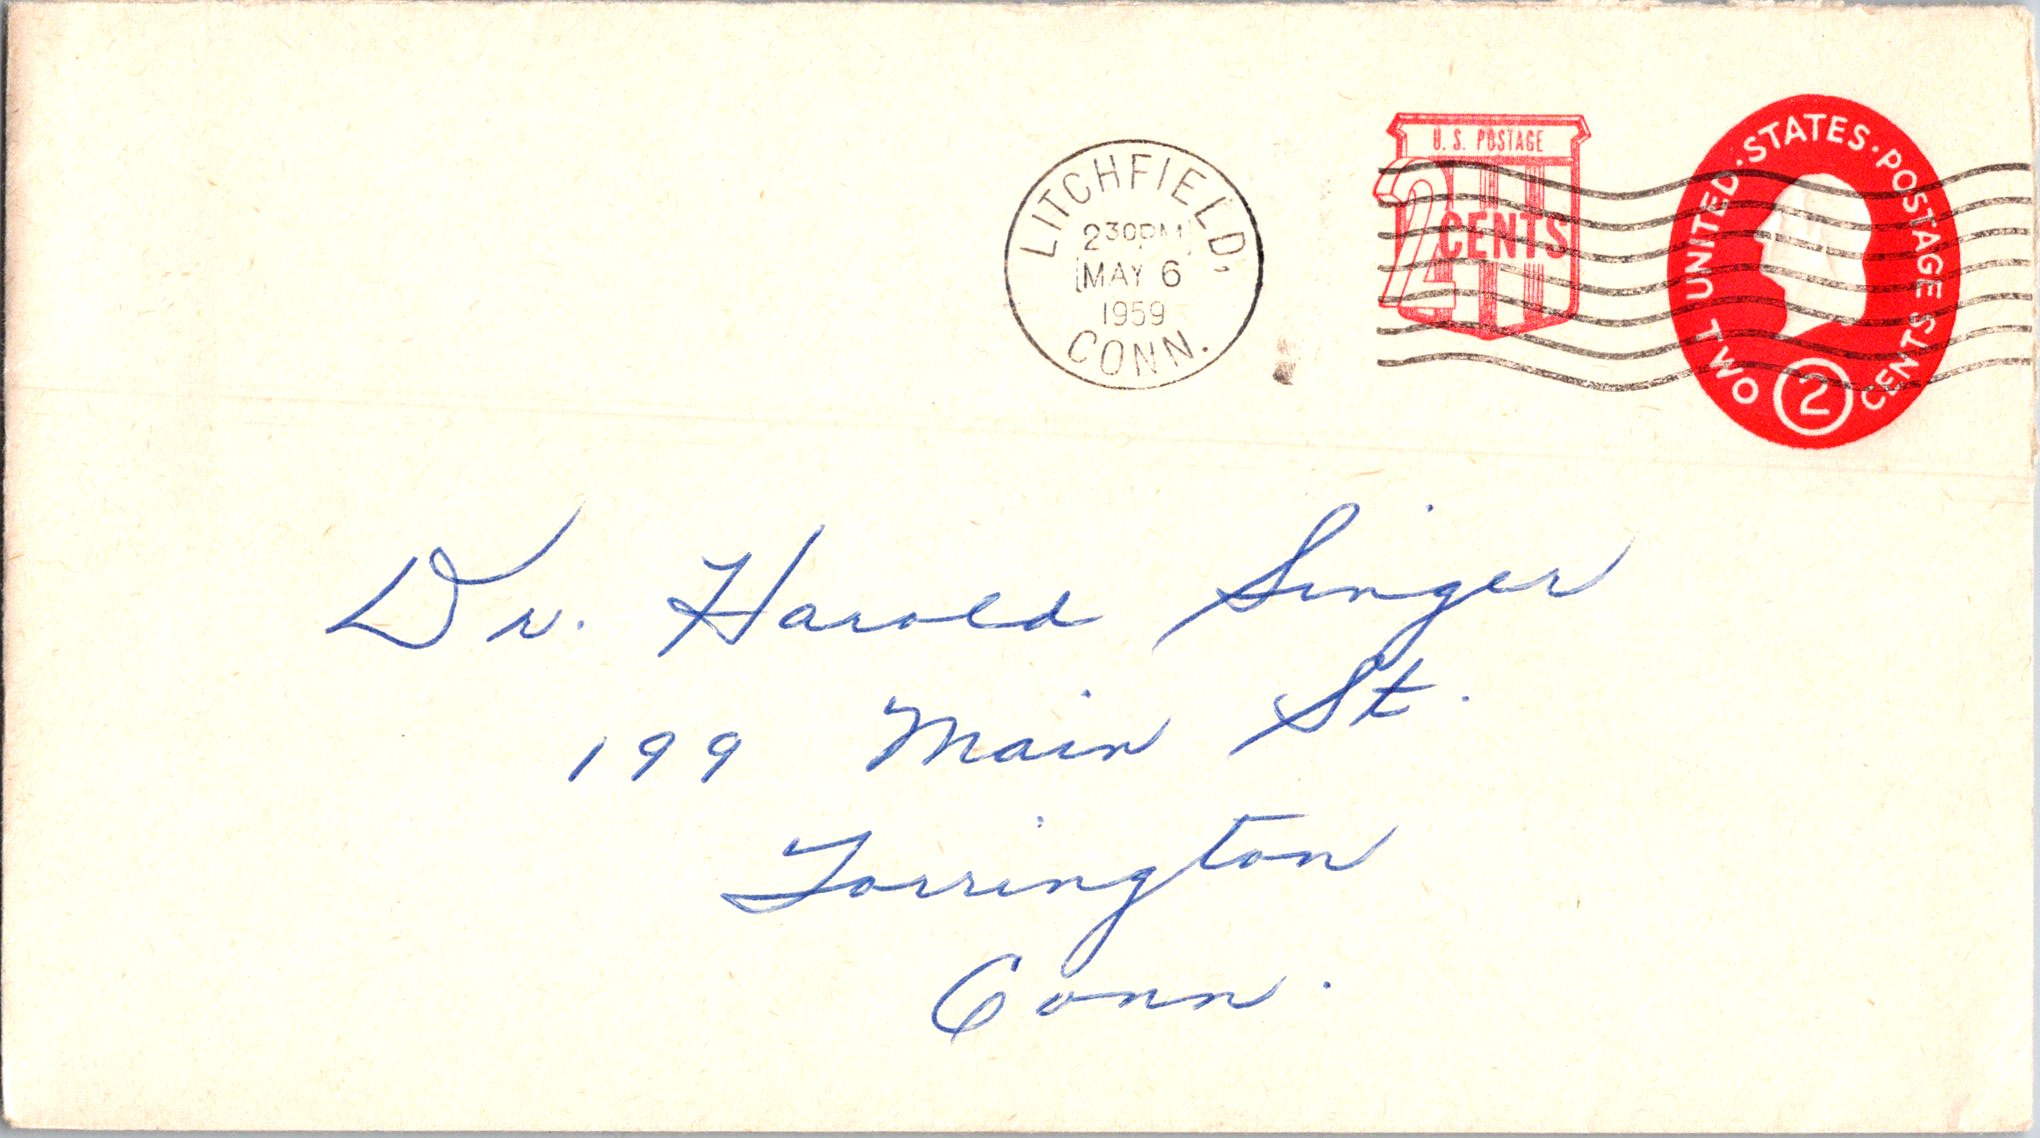 LITCHFIELD,
2 30 PM
MAY 6
1959
CONN.
U. S. POSTAGE
2 CENTS
UNITED · STATES · POSTAGE
TWO 2 CENTS
Dr. Harold Singer
199 Main St.
Torrington
Conn.